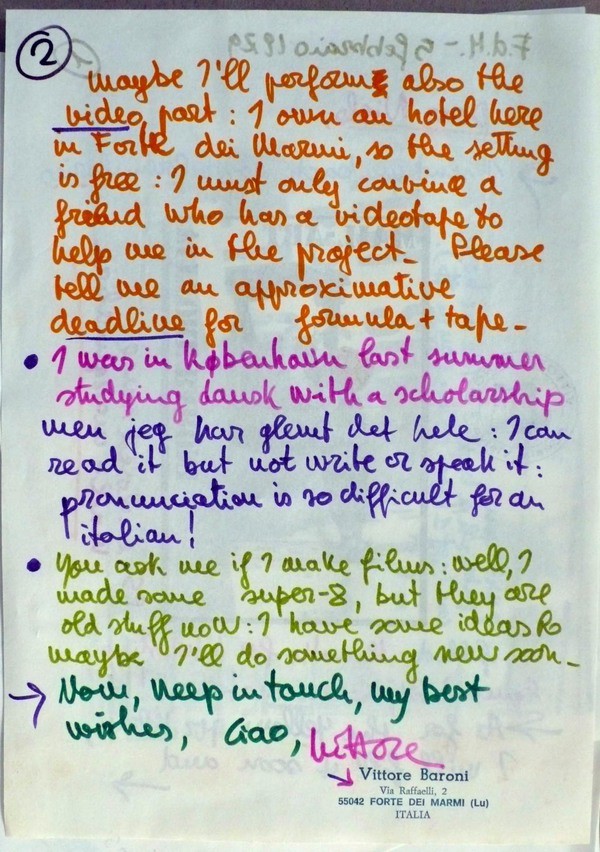 2
maybe I'll perform also the
video part : I own an hotel here
in Forte dei Marmi, so the setting
is free : I must only convince a
friend who has a videotape to
help me in the project_ Please
tell me an approximative
deadline for formula + tape_
• I was in København last summer
studying dansk with a scholarship
men jeg har glemt det hele : I can
read it but not write or speak it :
pronunciation is so difficult for an
italian!
• You ask me if I make films : well, I
made some super-8, but they are
old stuff now : I have some ideas so
maybe I'll do something new soon_
→ Now, keep in touch, my best
wishes, Ciao, Vittore
Vittore Baroni
Via Raffaelli, 2
55042 FORTE DEI MARMI (Lu)
ITALIA